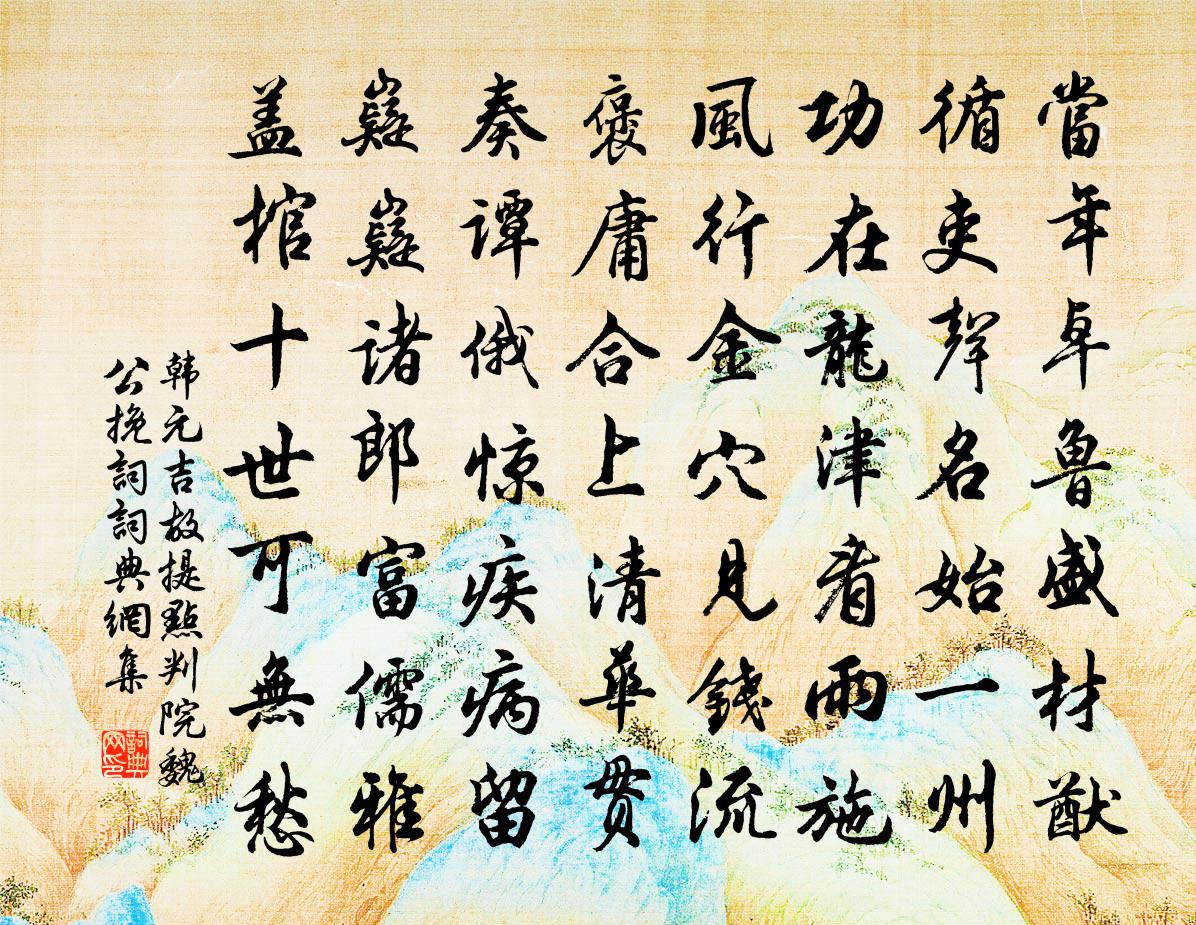 當年卓魯盛材猷
循吏聲名始一州
功在龍津看雨施
風行金穴見錢流
褒庸合上清華貫
奏谭俄惊疾病留
嶷嶷诸郎富儒雅
盖棺十世可無愁
韩元吉故提點判院魏
公挽詞詞典網集
詞典
网印